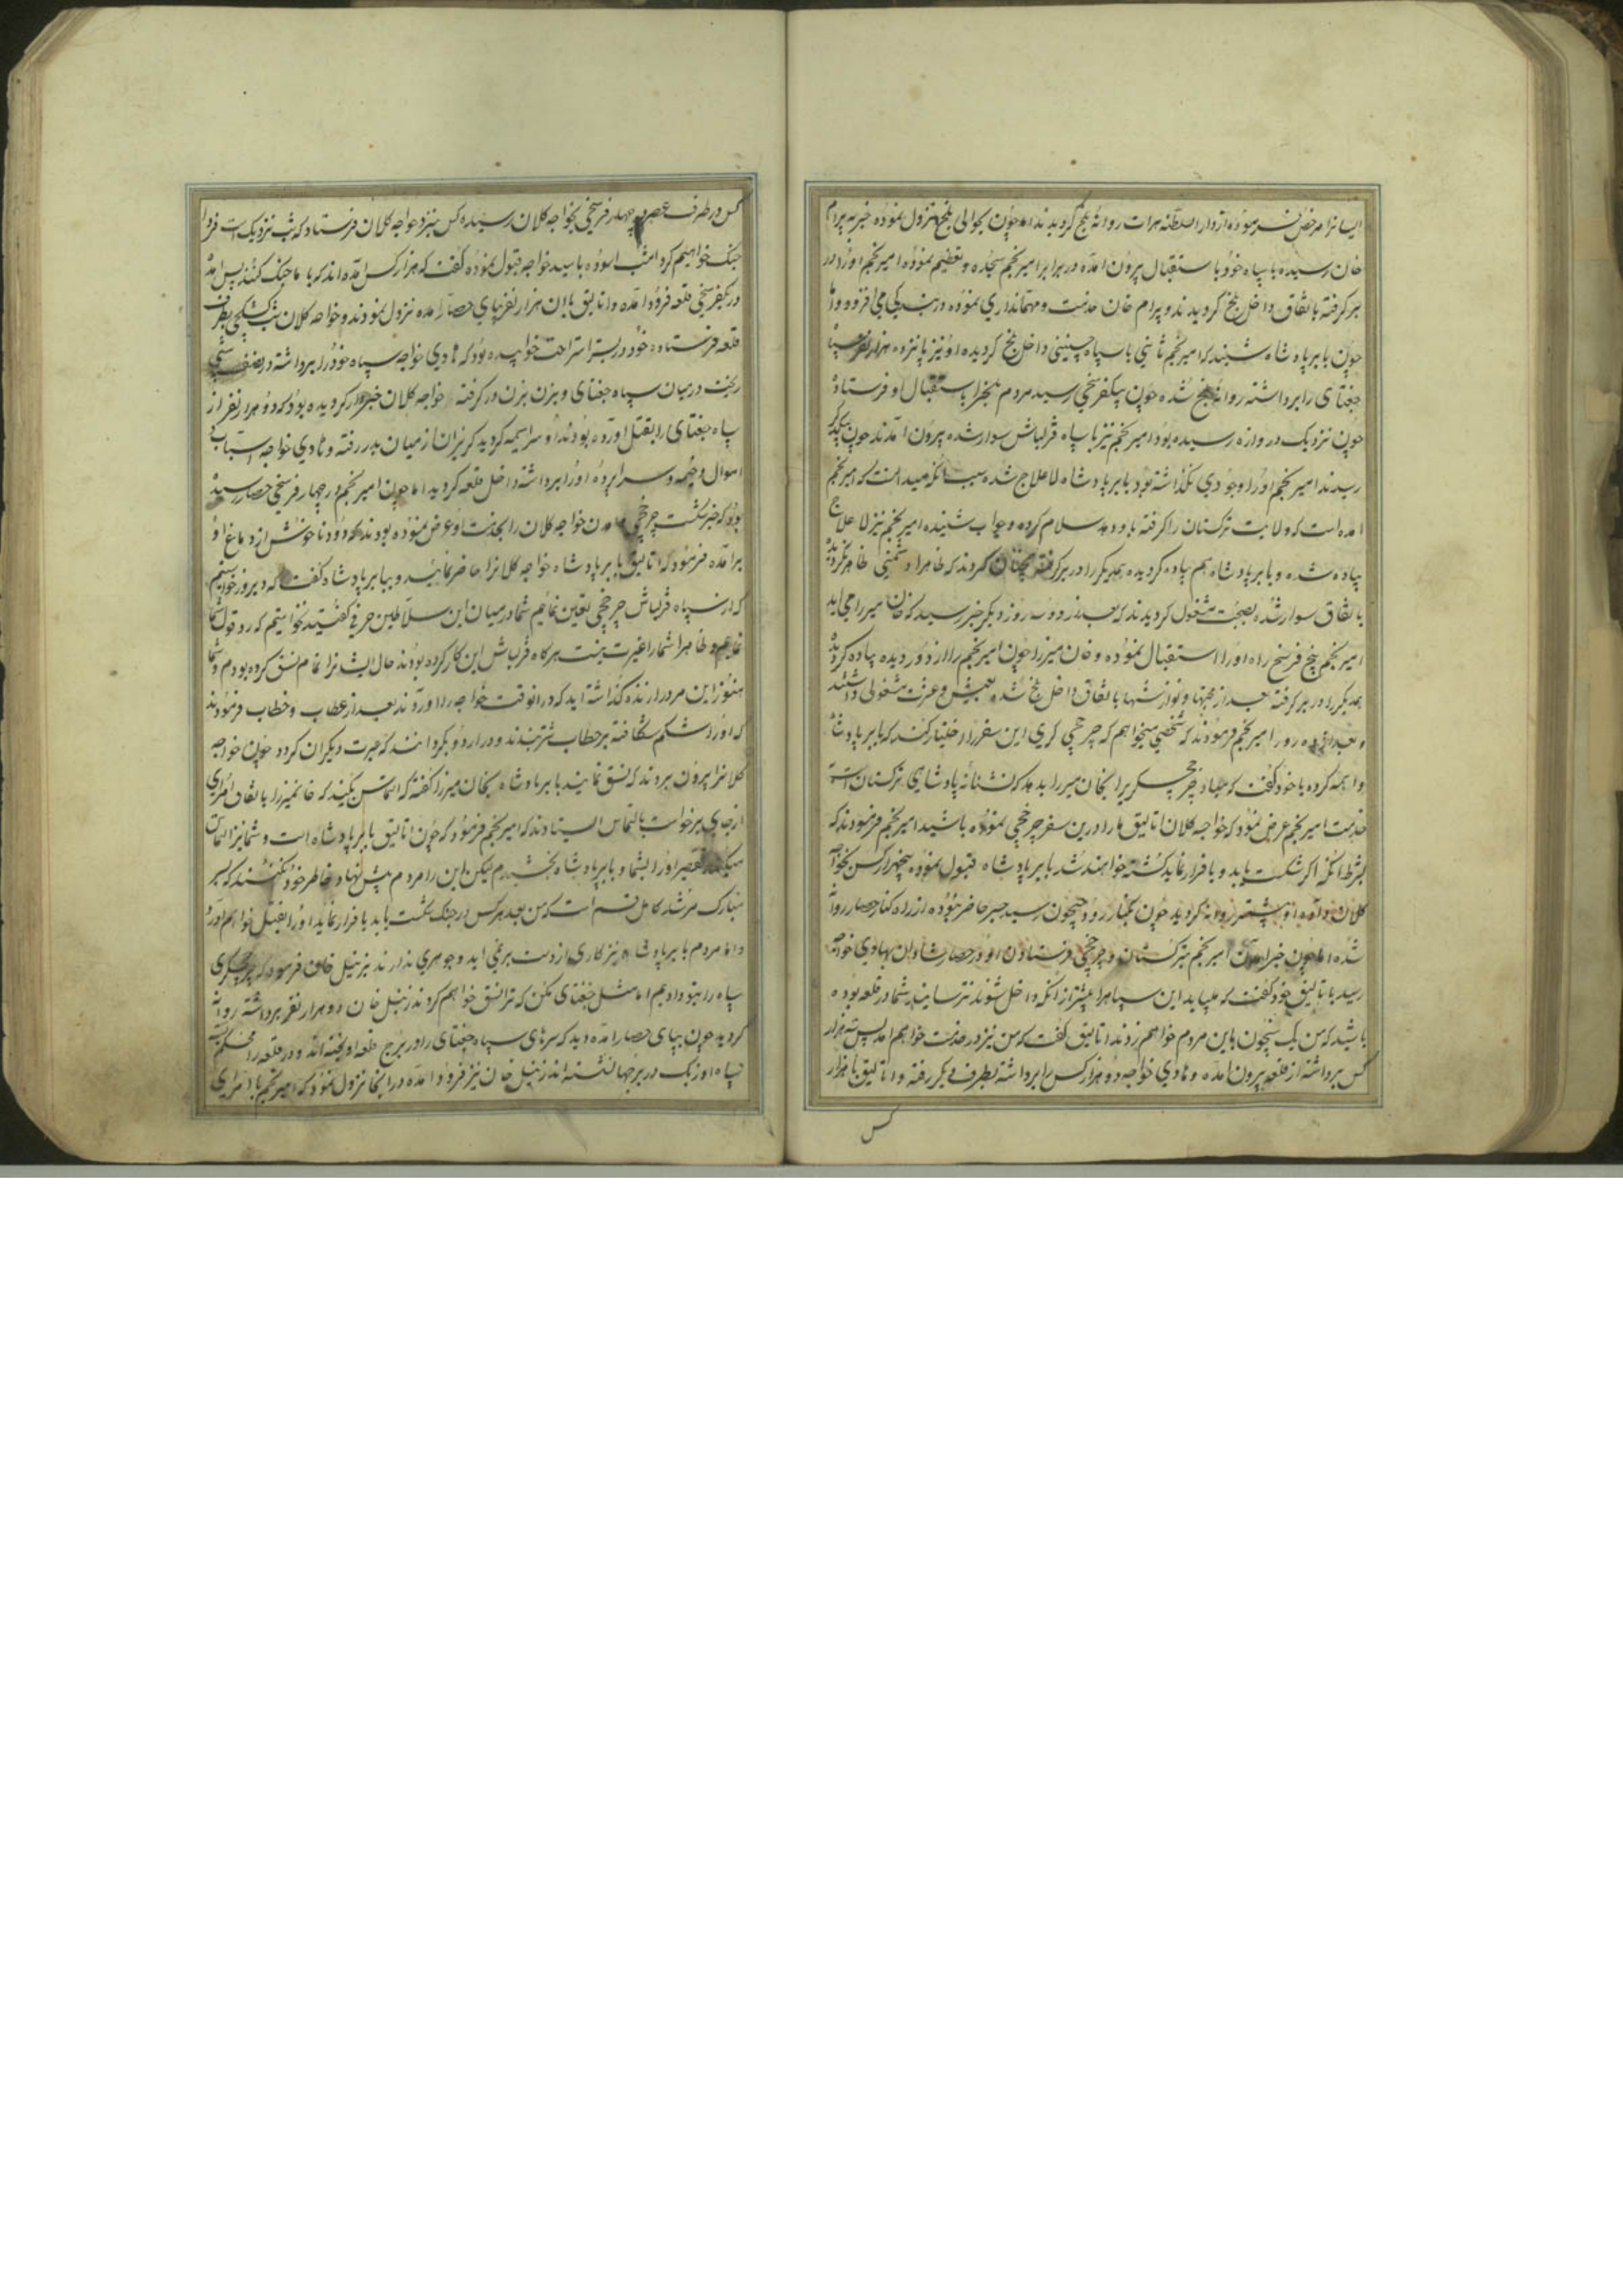 ایشانرا مرخص فرموده از دار السلطنه هرات روانهٔ بلخ گردیدند اما چون بحوالی بلخ نزول نموده خبر به بیرام
خان رسیده با سپاه خود باستقبال بیرون آمده در برابر امیر نجم سجده و تعظیم نموده امیر نجم او را در
بر گرفته باتفاق داخل بلخ گردیدند و بیرام خان خدمت و مهمانداری نموده در بندگی می افزود و اما
چون بابر پادشاه شنید که امیر نجم ثانی با سپاه چنینی داخل بلخ گردیده او نیز پانزده هزار نفر سپاه
جغتای را برداشته روانهٔ بلخ شده چون بیکفرسخی رسید مردم بلخ را باستقبال او فرستاد
چون نزدیک دروازه رسیده بود امیر نجم نیز با سپاه قزلباش سوار شده بیرون آمدند چون بیکدیگر
رسیدند امیر نجم او را وجودی نگذاشته بود بابر پادشاه لاعلاج شده سبب آنکه میدانست که امیر نجم
آمده است که ولایت ترکستان را گرفته باو دهد سلام کرده و جواب شنیده امیر نجم نیز لا علاج
پیاده شده و بابر پادشاه هم پیاده گردیده همدیگر را در بر گرفته چنان کردند که ظاهرا دشمنی ظاهر نگردید
باتفاق سوار شده بصحبت مشغول گردیدند که بعد از دو سه روز دیگر خبر رسید که خان میرزا می آید
امیر نجم پنج فرسخ راه او را استقبال نموده و خان میرزا چون امیر نجم را از دور دیده پیاده گردید
همدیگر را در بر گرفته بعد از محبتها و نوازشها باتفاق داخل بلخ شده بعیش و عشرت مشغولی داشتند
و بعد از ده روز امیر نجم فرمودند که شخصی میخواهم که چرخچی گری این سفر را اختیار کند که بابر پادشاه
واهمه کرده با خود گفت که مبادا چرخچیگریرا بخان میرزا بدهد که نشانهٔ پادشاهی ترکستان است
خدمت امیر نجم عرض نمود که خواجه کلان اتالیق ما را درین سفر چرخچی نموده باشید امیر نجم فرمودند که
بشرط آنکه اگر شکست یابد و یا فرار نماید کشته خواهند شد بابر پادشاه قبول نموده پنجهزار کس بخواجه
کلان داده او پیشتر روانه گردید چون بکنار رود جیحون رسید جسر حاضر نموده از راه کنار حصار روانه
شده اما چون خبر آمدن امیر نجم بترکستان و چرخچی فرستادن او در حصار شادمان بهادی خواجه
رسید باتالیق خود گفت که میباید این سپاه را پیشتر از آنکه داخل شوند ترسانید شما در قلعه بوده
باشید که من یک شبخون باین مردم خواهم زد اتالیق گفت که من نیز در خدمت خواهم آمد پس سه هزار
کس برداشته از قلعه بیرون آمده و هادی خواجه دو هزار کس را برداشته بطرف دیگر رفته و اتالیق با هزار
کس
کس در طرف عصر و چهار فرسخی بخواجه کلان رسیده کس بنزد خواجه کلان فرستاد که شب نزدیک است فردا
جنگ خواهیم کرد امشب آسوده باشید خواجه قبول نموده گفت که هزار کس آمده اند که با ما جنگ کنند پس آمده
در یکفرسخی قلعه فرود آمده و اتالیق با آن هزار نفر بپای حصار آمده نزول نمودند و خواجه کلان شب کشیکچی بطرف
قلعه فرستاده خود در بستر استراحت خوابیده بود که هادی خواجه سپاه خود را برداشته در نصف شب
ریخت در میان سپاه جغتای و بزن بزن در گرفته خواجه کلان خبردار گردیده بود که دو هزار نفر از
سپاه جغتای را بقتل آورده بودند او سراسیمه گردید گریزان از میان بدر رفته و هادی خواجه اسباب و
اموال و خیمه و سراپرده او را برداشته داخل قلعه گردید اما چون امیر نجم در چهار فرسخی حصار رسیده
بود که خبر شکست چرخچی آمدن خواجه کلان را بخدمت او عرض نموده بودند که دود ناخوشش از دماغ او
برآمده فرمود که اتالیق بابر پادشاه خواجه کلانرا حاضر نمائید و ببابر پادشاه گفت که دیروز خواستیم
که از سپاه قزلباش چرخچی تعین نمائیم شما در میان این سلاطین حرفی گفتید نخواستیم که رد قول شما
نمایم و ظاهرا شما را غیرت نیست هرگاه قزلباش این کار کرده بودند حال ایشانرا تمام نسق کرده بودم و شما
هنوز این مرد را زنده گذاشته اید که در آنوقت خواجه را آوردند بعد از عطاب و خطاب فرمودند
که او را شکم شکافته بر خطاب شتر بندند و در اردو بگردانند که عبرت دیگران گردد چون خواجه
کلانرا بیرون بردند که نسق نمایند بابر پادشاه بخان میرزا گفته که التماس بکنید که خانمیرزا باتفاق امرای
از جای برخواست بالتماس ایستادند که امیر نجم فرمود که چون اتالیق بابر پادشاه است و شما نیز التماس
میکنید تقصیر او را بشما و بابر پادشاه بخشیدم لیکن این را مردم پیش نهاد خاطر خود نکنند که بسر
مبارک مرشد کامل قسم است که من بعد هر کس در جنگ شکست یابد یا فرار نماید او را بقتل خواهم آورد
و اما مردم بابر پادشاه نیز کاری از دست برنمی آید و جوهری ندارند بزینل خان فرمود که چرخچیگری
سپاه را بتو دادیم اما مثل جغتای مکن که ترا نسق خواهم کرد زینل خان دو هزار نفر برداشته روانه
گردید چون بپای حصار آمده دید که سرهای سپاه جغتای را در برج قلعه آویخته اند و در قلعه را محکم
سپاه اوزبک در برجها نشسته اند زینل خان نیز فرود آمده در آنجا نزول نمود که امیر نجم با امرای